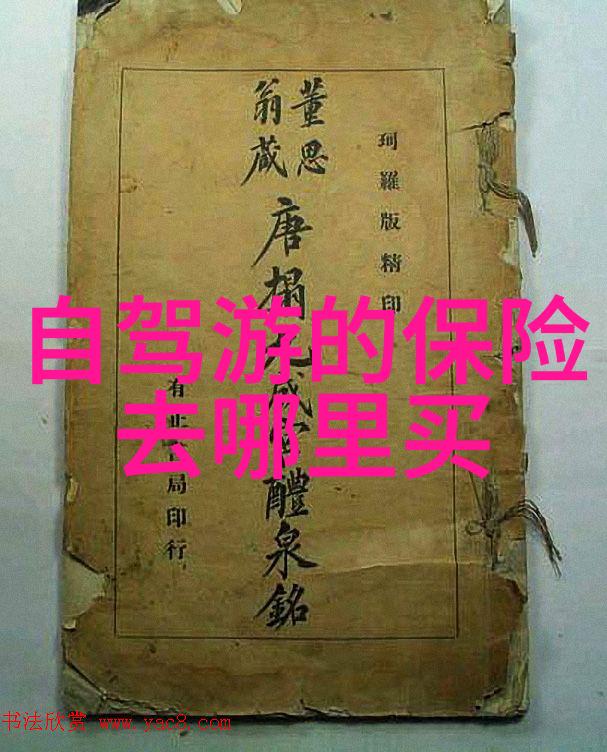 珂羅版精印
董思
翁藏
唐榻九成宮醴泉銘
有正局印行
自驾游的保险
去哪里买
书法欣赏 www.yac8.com